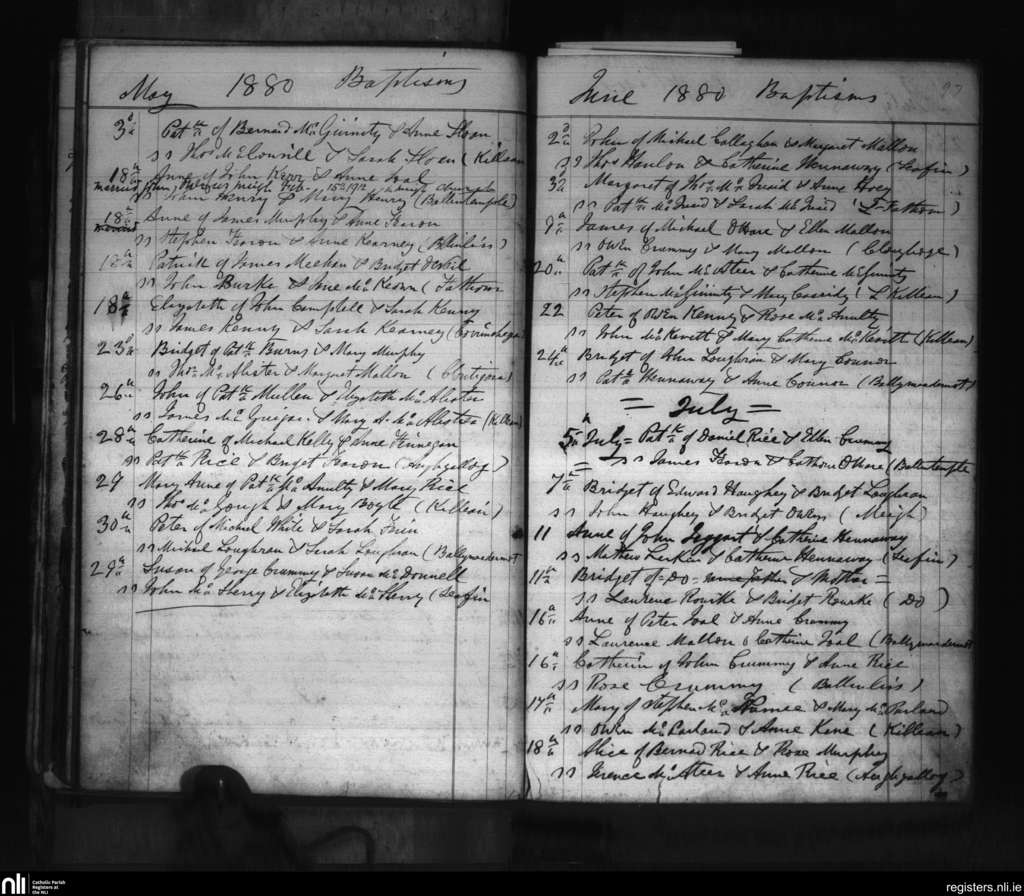 May 1880 Baptisms
3d Patk of Bernard McGuinity & Anne Sloan
ss Thos McConville & Sarah Sloan (Killean
18th Anne of John Kerr & Anne Toal
married 15th 1912
ss Henry & Mary Henry (Ballintemple)
18th Anne of James Murphy & Anne Fearon
married
ss Stephen Fearon & Anne Kearney (Ballinliss)
Patrick of James Meehan & Bridget
ss John Burke & Jane McKeown (Fathom
18th Elizabeth of John Campbell & Sarah Kenny
ss James Kenny & Sarah Kearney
23d Bridget of Patk Burns & Mary Murphy
ss Thos McAlister & Margaret Mallon (Clontigora)
26th John of Patk Mullen & Elizabeth McAlister
ss James McGuigan & Mary A. McAlister (Killean)
28th Catherine of Michael Kelly & Anne Finnegan
ss Patk Rice & Bridget Fearon (Aughgallog)
29 Mary Anne of Patk McAnulty & Mary Rice
ss Thos McGough & Mary Boyle (Killean)
30th Peter of Michael White & Sarah
ss Michael Loughran & Sarah Loughran (Ballymacdermot
29th Susan of George Crummy & Susan McDonnell
ss John McSherry & Elizabeth McSherry (Seafin
June 1880 Baptisms 97
2d John of Michael Callaghan & Margaret Mallon
ss Thos Hanlon & Catherine Hennaway (Seafin)
3d Margaret of Thos McQuaid & Anne Hoey
ss Patk McQuaid & Sarah McQuaid (L Fathom)
9th James of Michael OHare & Ellen Mallon
ss Owen Crummy & Mary Mallon (Cloughoge)
20th Patk of John McAteer & Catherine McGuinity
ss Stephen McGuinity & Mary Cassidy (L Killean)
22 Peter of Owen Kenny & Rose McAnulty
ss John McKevitt & Mary Cathne McKevitt (Killean)
24th Bridget of John Loughran & Mary Connor
ss Patk Hennaway & Anne Connor (Ballymacdermott)
= July =
5th July = Patk of Daniel Rice & Ellen Crummy
= ss James Fearon & Catherine OHare (Ballintemple
7th Bridget of Edward Haughey & Bridget Loughran
ss John Haughey & Bridget Owens (Meigh)
11 Anne of John Taggart & Catherine Hennaway
ss Mathew Larkin & Catherine Hennaway (Seafin)
11th Bridget of = Do = same Father & Mother =
ss Laurence Rourke & Bridget Rourke (Do)
16th Anne of Peter Toal & Anne Crummy
ss Laurence Mallon & Catherine Toal (Ballymacdermot
16th Catherin of John Crummy & Anne Rice
ss Rose Crummy (Ballinliss)
17th Mary of Stephen & Mary McParland
ss Owen McParland & Anne Kane (Killean)
18th Alice of Bernard Rice & Rose Murphy
ss Terence McAteer & Anne Rice (Aughgallog)
nli Catholic Parish
Registers at
the NLI
registers.nli.ie